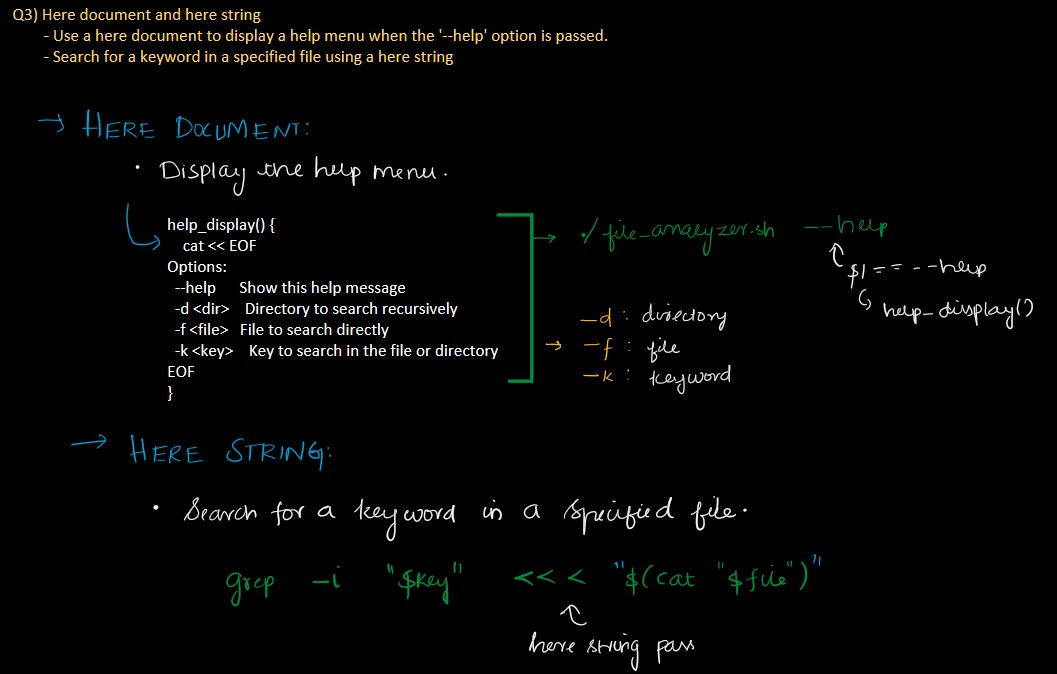 Q3) Here document and here string
- Use a here document to display a help menu when the '--help' option is passed.
- Search for a keyword in a specified file using a here string
→ HERE DOCUMENT:
• Display the help menu.
help_display() {
cat << EOF
Options:
--help Show this help message
-d <dir> Directory to search recursively
-f <file> File to search directly
-k <key> Key to search in the file or directory
EOF
}
→ ./file_analyzer.sh --help
$1 == --help
help_display()
-d : directory
→ -f : file
-k : keyword
→ HERE STRING:
• Search for a keyword in a specified file.
grep -i "$key" <<< "$(cat "$file")"
here string pass